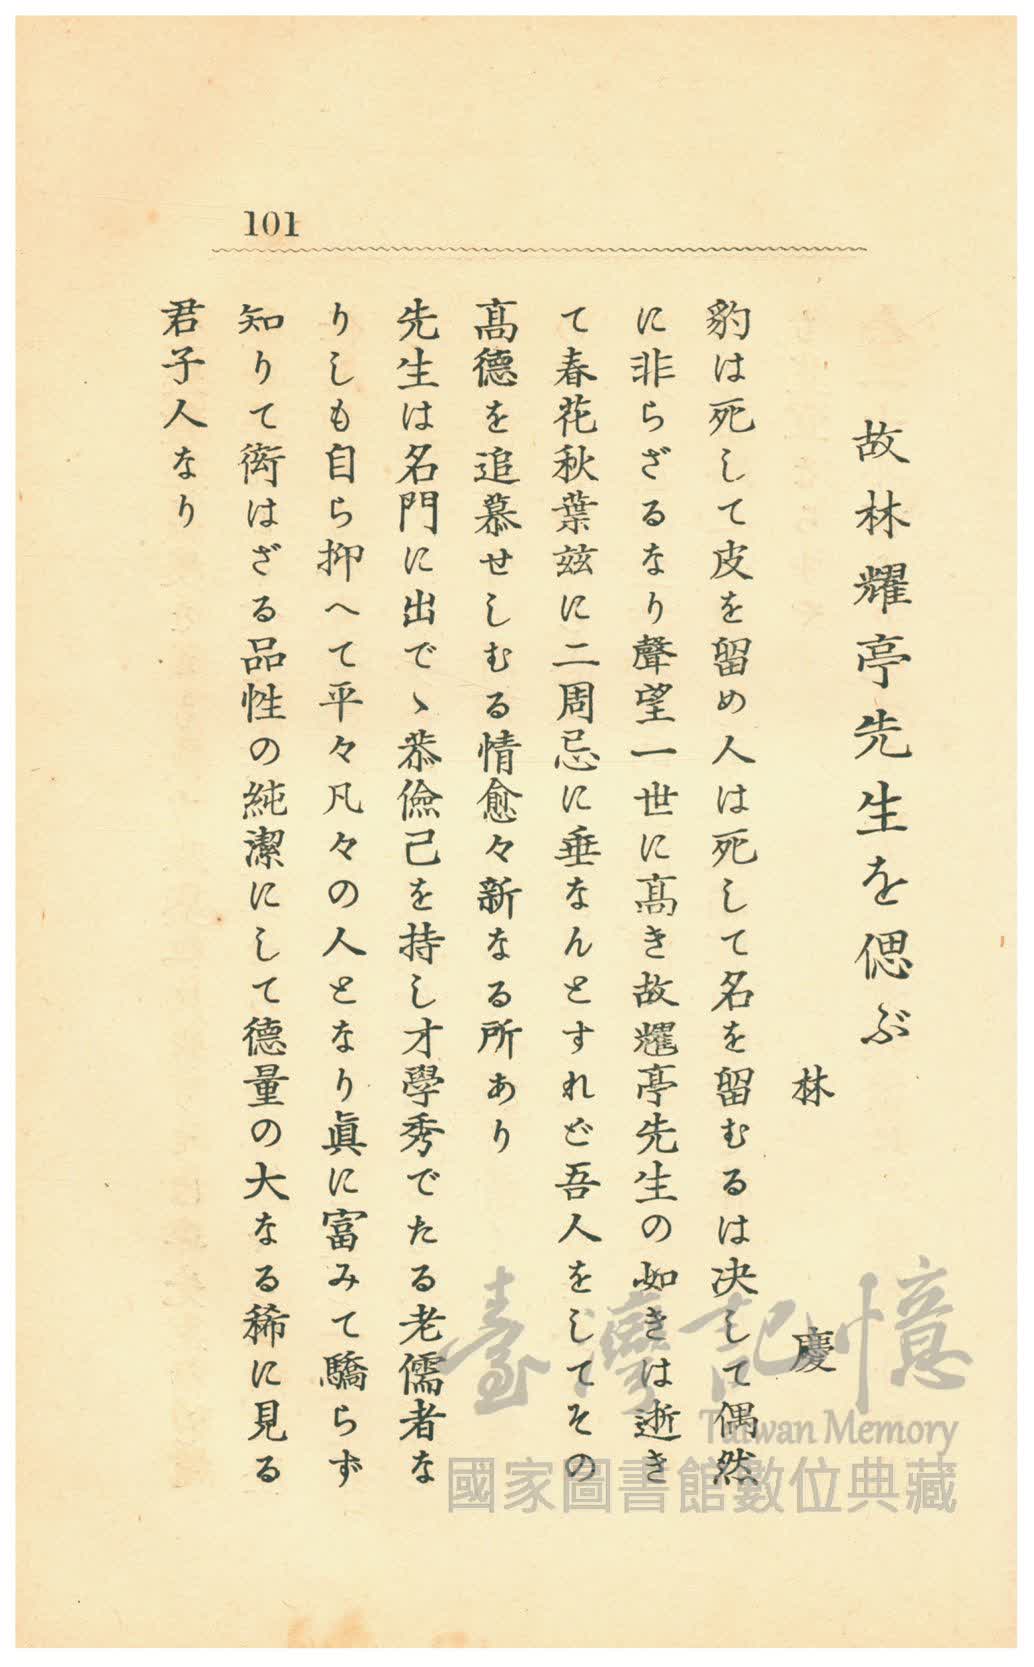 101
故林耀亭先生を偲ぶ
林 慶
豹は死して皮を留め人は死して名を留むるは决して偶然
に非らざるなり聲望一世に髙き故耀亭先生の如きは逝き
て春花秋葉玆に二周忌に垂なんとすれど吾人をしてその
髙德を追慕せしむる情愈々新なる所あり
先生は名門に出でゝ恭儉己を持し才學秀でたる老儒者な
りしも自ら抑へて平々凡々の人となり眞に富みて驕らず
知りて衒はざる品性の純潔にして德量の大なる稀に見る
君子人なり
臺灣記憶
Taiwan Memory
國家圖書館數位典藏